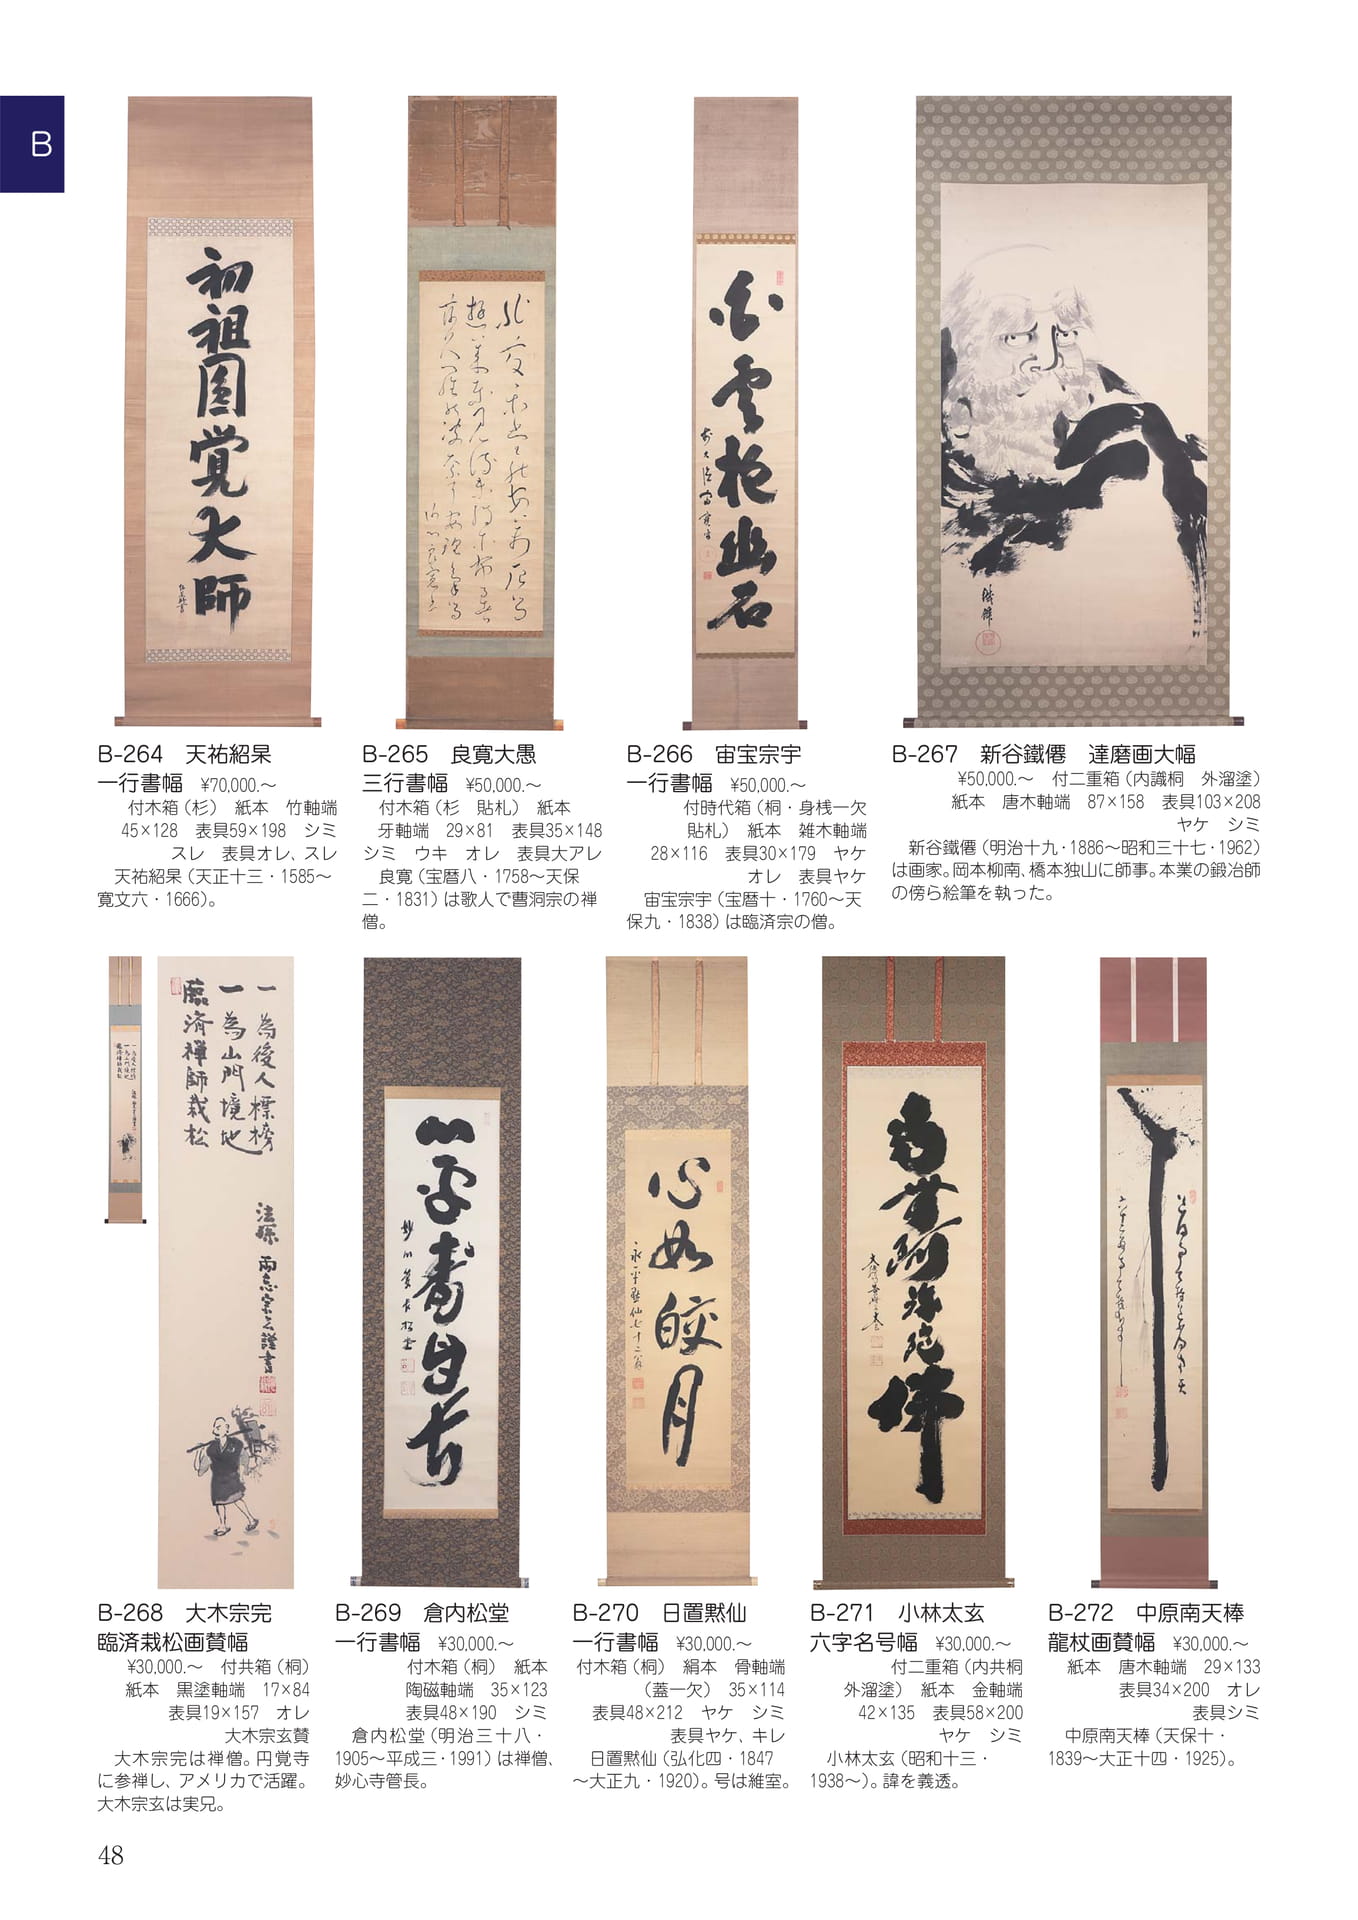 B
初祖圓覚大師
白雲抱幽石
B-264 天祐紹杲
一行書幅 ¥70,000.～
付木箱（杉） 紙本 竹軸端
45×128 表具59×198 シミ
スレ 表具オレ、スレ
天祐紹杲（天正十三・1585～
寛文六・1666）。
B-265 良寛大愚
三行書幅 ¥50,000.～
付木箱（杉 貼札） 紙本
牙軸端 29×81 表具35×148
シミ ウキ オレ 表具大アレ
良寛（宝暦八・1758～天保
二・1831）は歌人で曹洞宗の禅
僧。
B-266 宙宝宗宇
一行書幅 ¥50,000.～
付時代箱（桐・身桟一欠
貼札） 紙本 雑木軸端
28×116 表具30×179 ヤケ
オレ 表具ヤケ
宙宝宗宇（宝暦十・1760～天
保九・1838）は臨済宗の僧。
B-267 新谷鐵僊 達磨画大幅
¥50,000.～ 付二重箱（内識桐 外溜塗）
紙本 唐木軸端 87×158 表具103×208
ヤケ シミ
新谷鐵僊（明治十九・1886～昭和三十七・1962）
は画家。岡本柳南、橋本独山に師事。本業の鍛冶師
の傍ら絵筆を執った。
一為後人標榜
一為山門境地
臨済禅師栽松
法孫 兩忘宗完謹書
心如皎月
永平黙仙七十二翁
南無阿弥陀佛
B-268 大木宗完
臨済栽松画賛幅
¥30,000.～ 付共箱（桐）
紙本 黒塗軸端 17×84
表具19×157 オレ
大木宗玄賛
大木宗完は禅僧。円覚寺
に参禅し、アメリカで活躍。
大木宗玄は実兄。
B-269 倉内松堂
一行書幅 ¥30,000.～
付木箱（桐） 紙本
陶磁軸端 35×123
表具48×190 シミ
倉内松堂（明治三十八・
1905～平成三・1991）は禅僧、
妙心寺管長。
B-270 日置黙仙
一行書幅 ¥30,000.～
付木箱（桐） 絹本 骨軸端
（蓋一欠） 35×114
表具48×212 ヤケ シミ
表具ヤケ、キレ
日置黙仙（弘化四・1847
～大正九・1920）。号は維室。
B-271 小林太玄
六字名号幅 ¥30,000.～
付二重箱（内共桐
外溜塗） 紙本 金軸端
42×135 表具58×200
ヤケ シミ
小林太玄（昭和十三・
1938～）。諱を義透。
B-272 中原南天棒
龍杖画賛幅 ¥30,000.～
紙本 唐木軸端 29×133
表具34×200 オレ
表具シミ
中原南天棒（天保十・
1839～大正十四・1925）。
48